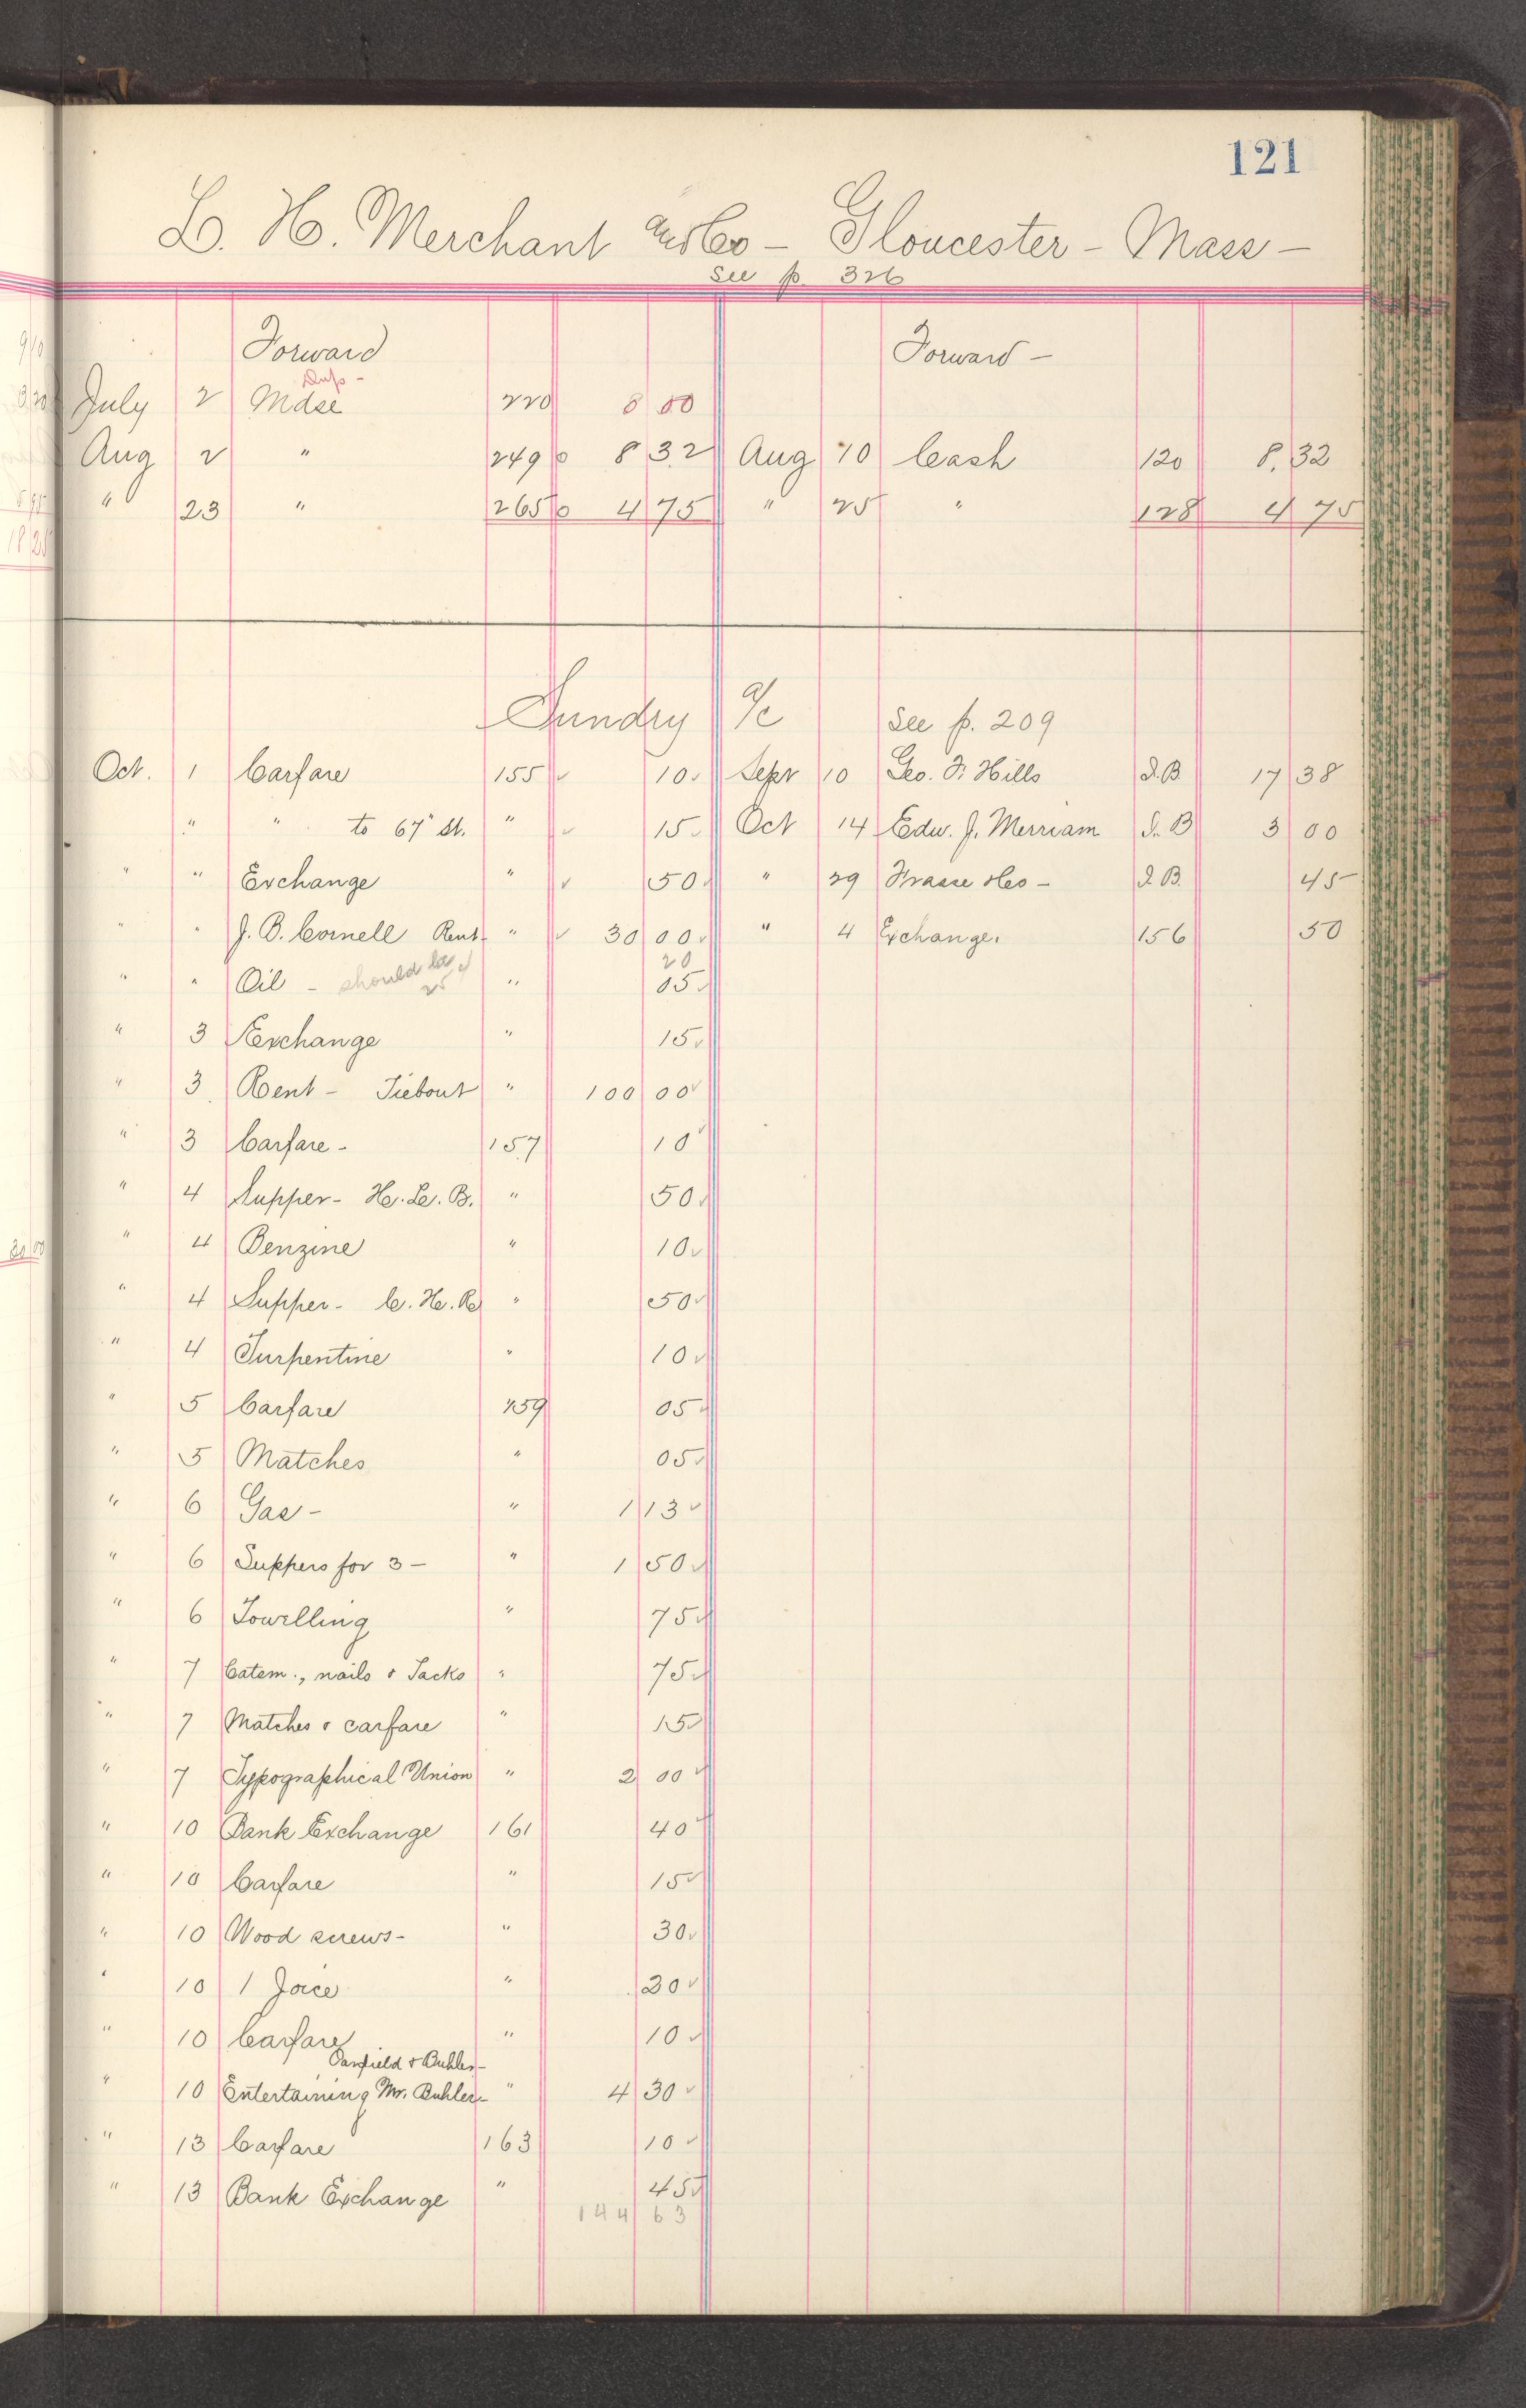 121
L. H. Merchant and Co - Gloucester - Mass -
See p. 326
Forward Forward -
Dup -
July 2 Mdse 220 8 00
Aug 2 " 249 8 32 Aug 10 Cash 120 8.32
" 23 " 265 4 75 " 25 " 128 4 75
Sundry a/c See p. 209
Oct. 1 Carfare 155 ✓ 10 ✓ Sept 10 Geo. F. Hills I.B. 17 38
" " to 67" St. " ✓ 15 ✓ Oct 14 Edw. J. Merriam I.B 3 00
" " Exchange " ✓ 50 ✓ " 29 Frasse & Co - I.B. 45
" " J. B. Cornell Rent - " ✓ 30 00 ✓ " 4 Exchange. 156 50
20
" " Oil - should be 25 " 05 ✓
" 3 Exchange " 15 ✓
" 3 Rent - Tiebout " 100 00 ✓
" 3 Carfare - 157 10 ✓
" 4 Supper - H. L. B. " 50 ✓
" 4 Benzine " 10 ✓
" 4 Supper - C. H. R " 50 ✓
" 4 Turpentine " 10 ✓
" 5 Carfare 159 05 ✓
" 5 Matches " 05 ✓
" 6 Gas - " 1 13 ✓
" 6 Suppers for 3 - " 1 50 ✓
" 6 Towelling " 75 ✓
" 7 Catem., nails & Tacks " 75 ✓
" 7 Matches & carfare " 15 ✓
" 7 Typographical Union " 2 00 ✓
" 10 Bank Exchange 161 40 ✓
" 10 Carfare " 15 ✓
" 10 Wood screws - " 30 ✓
" 10 1 Joice " 20 ✓
" 10 Carfare " 10 ✓
Canfield & Buhler -
" 10 Entertaining Mr. Buhler - " 4 30 ✓
" 13 Carfare 163 10 ✓
" 13 Bank Exchange " 45 ✓
144 63